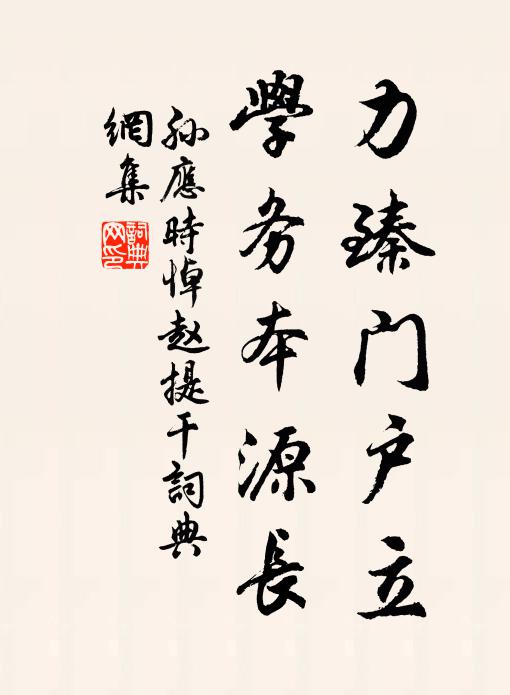 力臻门户立
學务本源長
孙應時悼赵提干詞典
網集
詞典網印